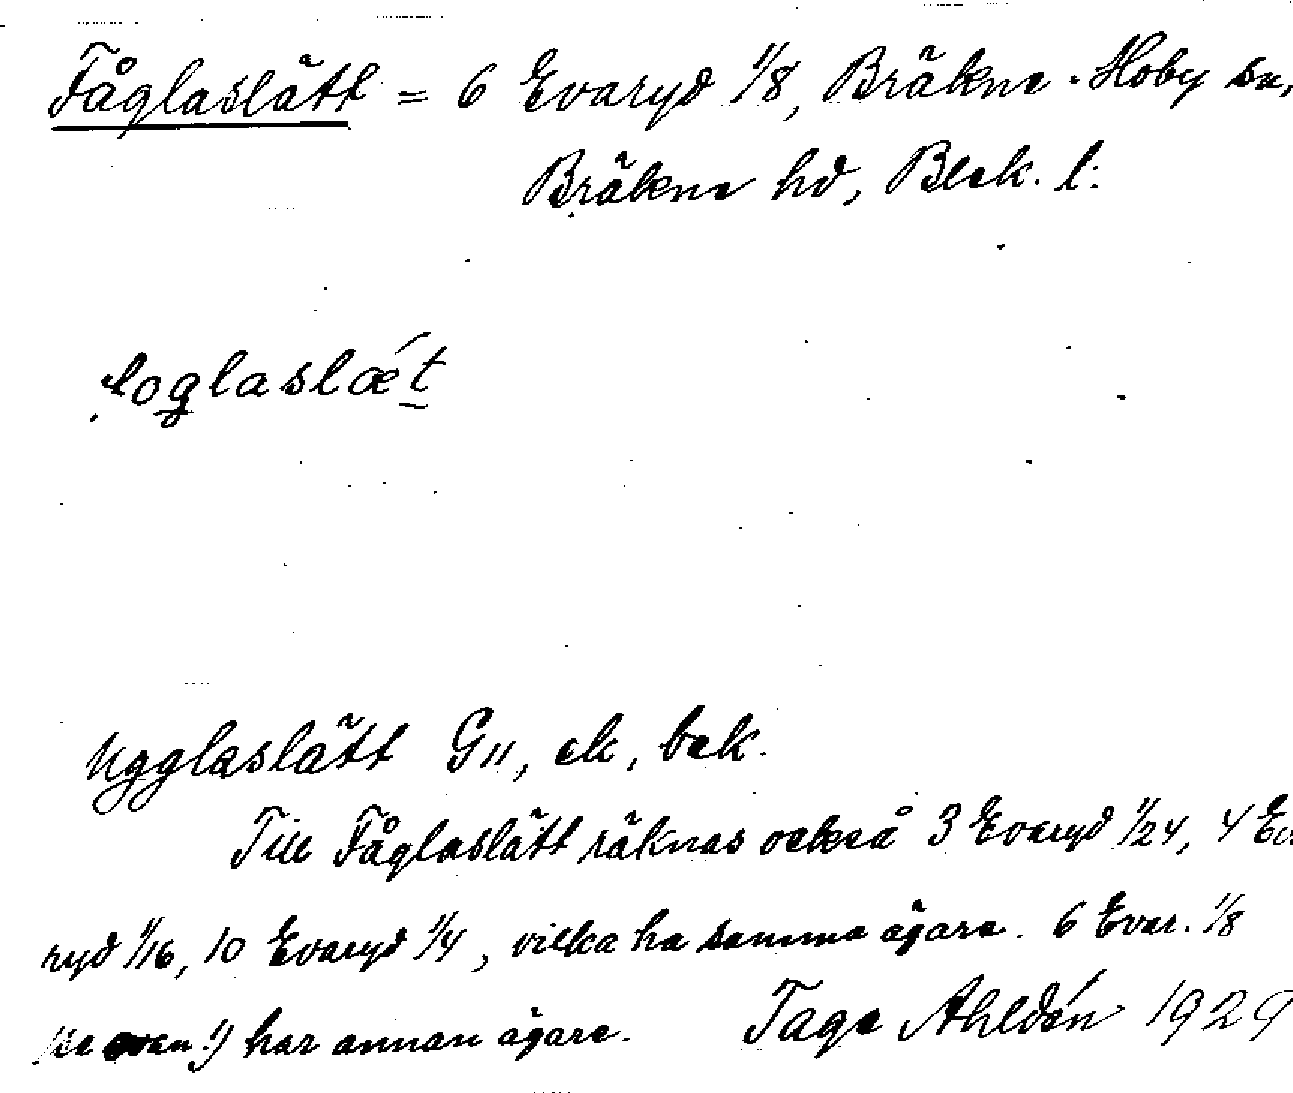 Fåglaslätt = 6 Evaryd 1/8, Bräkne-Hoby sn,
Bräkne hd, Blek. l:
foglaslæ´t
Ugglaslätt G11, ek, bek.
Till Fåglaslätt räknas också 3 Evaryd 1/24, 4 Eva
ryd 1/16, 10 Evaryd 1/4, vilka ha samma ägare. 6 Evar. 1/8
(se ovan!) har annan ägare. Tage Ahldén 1929